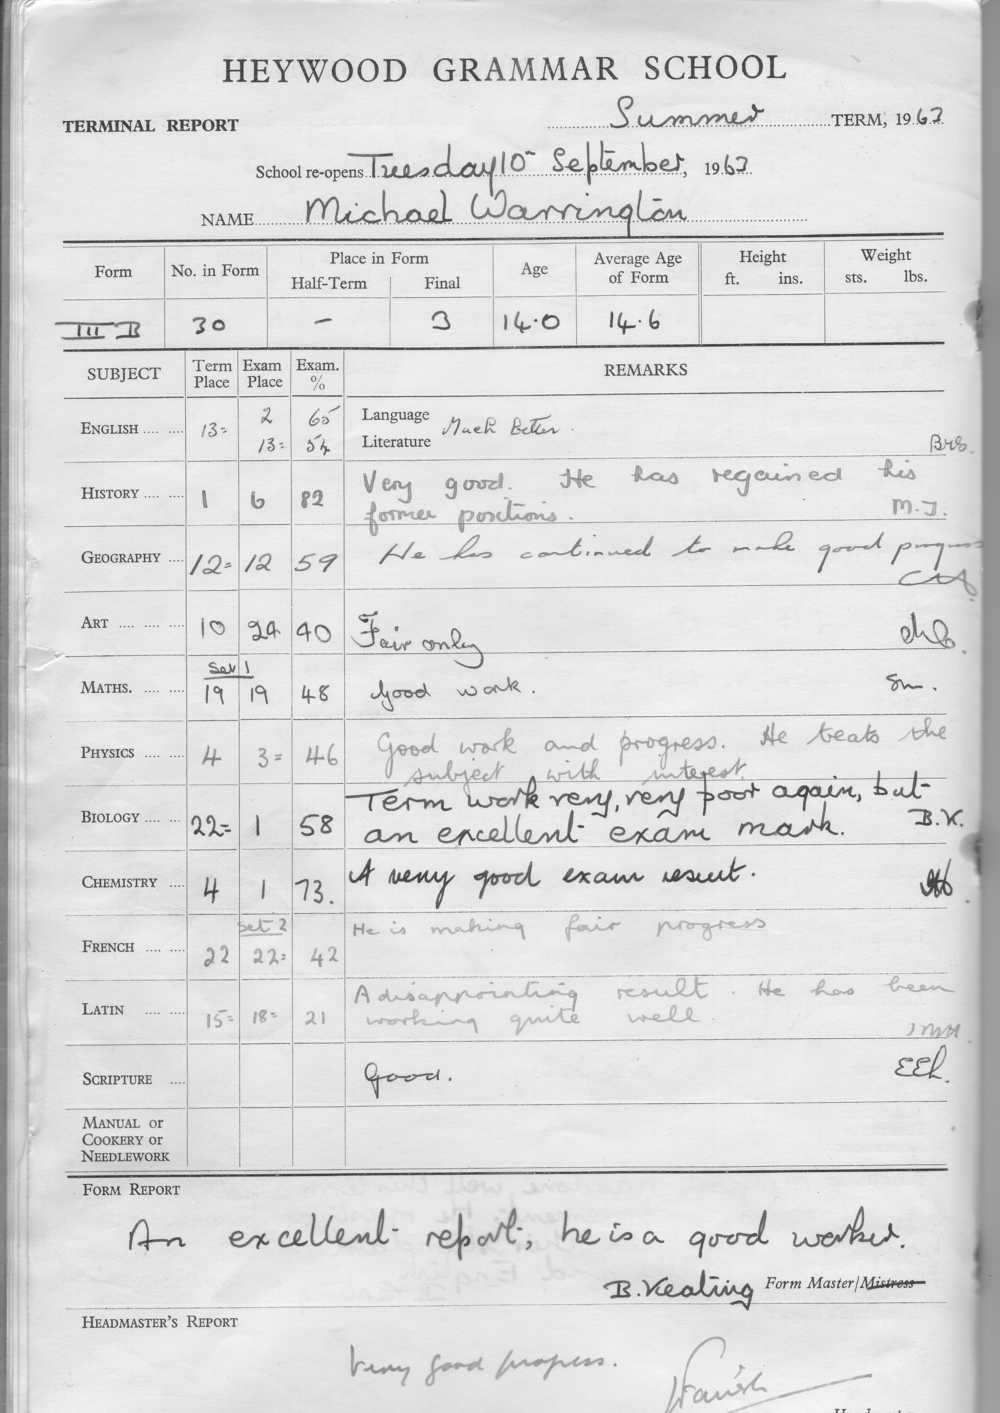 HEYWOOD GRAMMAR SCHOOL
TERMINAL REPORT Summer TERM, 1963
School re-opens Tuesday 10th September, 1963
NAME Michael Warrington
Form No. in Form Place in Form Half-Term Final Age Average Age of Form Height ft. ins. Weight sts. lbs.
III B 30 – 3 14.0 14.6
SUBJECT Term Place Exam Place Exam. % REMARKS
ENGLISH .... .... 13= 2 65 Language Much better.
13= 54 Literature
HISTORY .... .... 1 6 82 Very good. He has regained his
former positions. M.J.
GEOGRAPHY .... 12= 12 59 He has continued to make good progress
ART .... .... .... 10 24 40 Fair only
Set 1
MATHS. .... .... 19 19 48 Good work.
PHYSICS .... .... 4 3= 46 Good work and progress. He treats the
subject with interest.
BIOLOGY .... .... 22= 1 58 Term work very, very poor again, but
an excellent exam mark. B.K.
CHEMISTRY .... 4 1 73. A very good exam result.
Set 2
FRENCH .... .... 22 22= 42 He is making fair progress
LATIN .... .... 15= 18= 21 A disappointing result. He has been
working quite well.
SCRIPTURE .... Good. EEh.
MANUAL OR
COOKERY OR
NEEDLEWORK
FORM REPORT
An excellent report, he is a good worker.
B. Keating Form Master/Mistress
HEADMASTER'S REPORT
Very good progress.